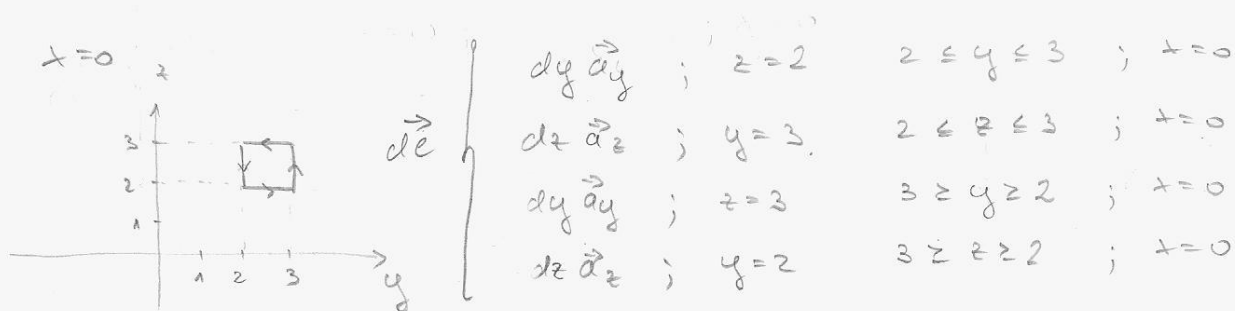 x=0
z
3
2
1
1 2 3
y
dℓ⃗
dy a⃗y ; z=2 2 ≤ y ≤ 3 ; x=0
dz a⃗z ; y=3. 2 ≤ z ≤ 3 ; x=0
dy a⃗y ; z=3 3 ≥ y ≥ 2 ; x=0
dz a⃗z ; y=2 3 ≥ z ≥ 2 ; x=0